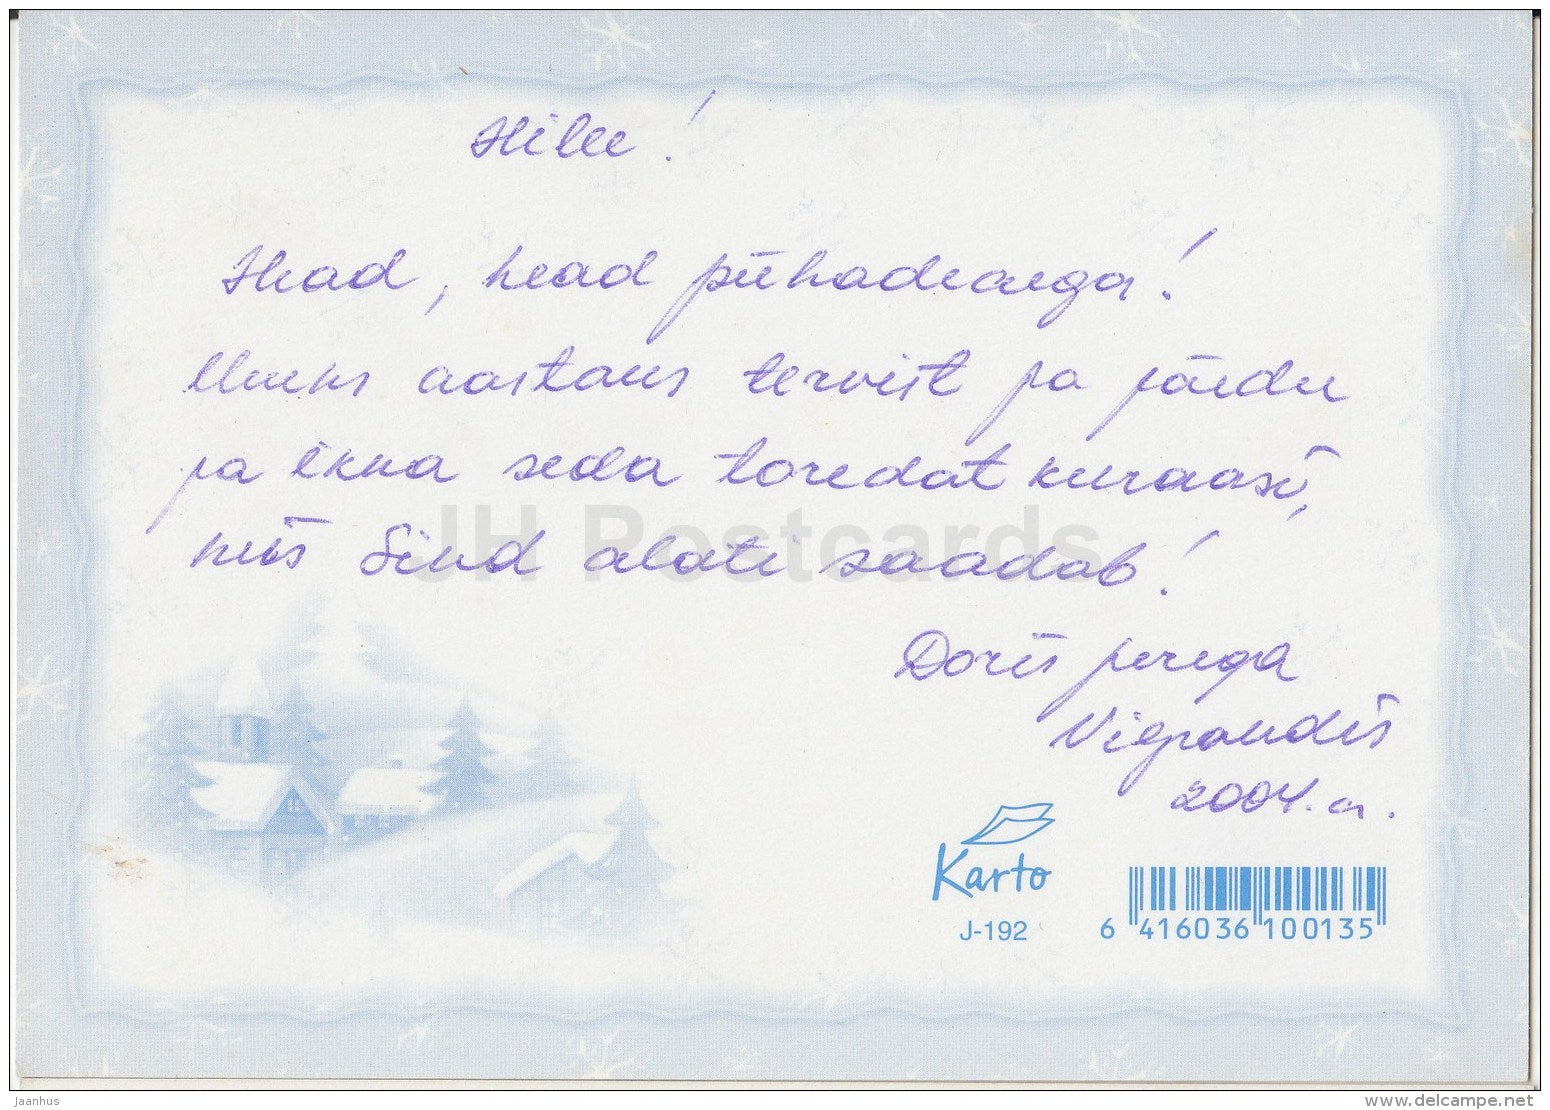 Hille!
Head, head pühadeaega!
Uueks aastaks tervist ja jõudu
ja ikka seda toredat kuraasi,
mis Sind alati saadab!
Doris perega
Viljandis
2004. a.
Karto
J-192
6 416036 100135
JH Postcards
Jaanhus
www.delcampe.net